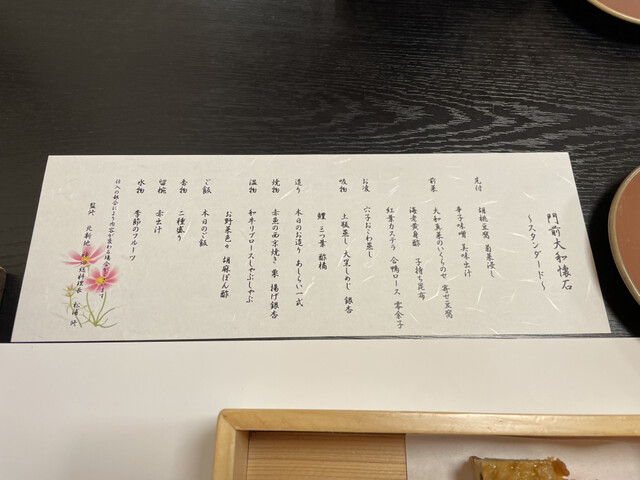 門前大和懐石
～スタンダード～
先付 胡桃豆腐 菊菜浸し
辛子味噌 美味出汁
前菜 大和真菜のいくらのせ 寄せ豆腐
海老黄身酢 子持ち昆布
紅葉カステラ 合鴨ロース 零余子
お凌 穴子おこわ蒸し
吸物 土瓶蒸し 大黒しめじ 銀杏
鱧 三つ葉 酢橘
造り 本日のお造り あしらい一式
焼物 赤魚の西京焼き 栗 揚げ銀杏
温物 和牛リブロースしゃぶしゃぶ
お野菜色々 胡麻ぽん酢
ご飯 本日のご飯
香物 二種盛り
留椀 赤出汁
水物 季節のフルーツ
仕入の都合により内容が変わる場合
監修 北新地
総料理長 松浦